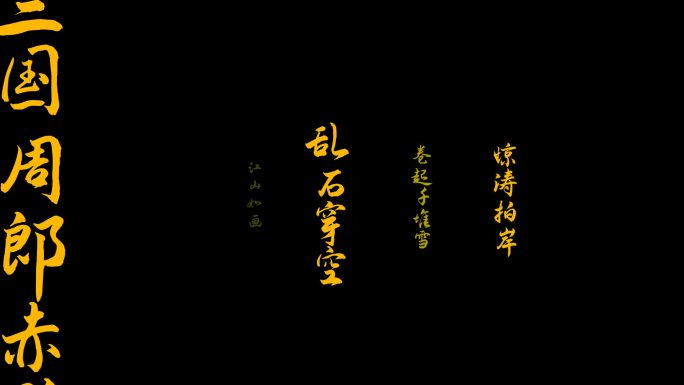 惊涛拍岸
卷起千堆雪
乱石穿空
江山如画
三国周郎赤